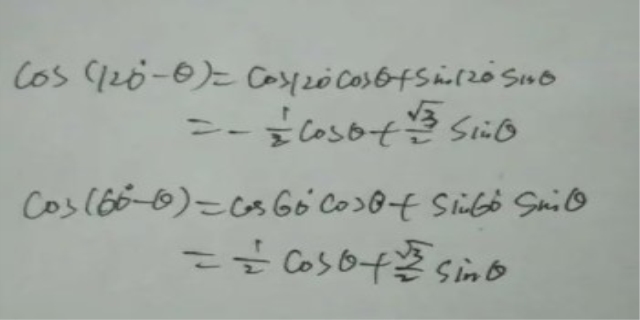 cos(120°-θ)=cos120°cosθ+sin120°sinθ
=-1/2cosθ+√3/2 sinθ
cos(60°-θ)=cos60°cosθ+sin60°sinθ
=1/2 cosθ+√3/2 sinθ